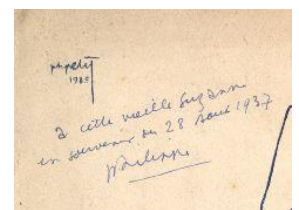 ph petit
1983
à cette vieille Suzanne
en souvenir du 28 Aout 1937
philippe